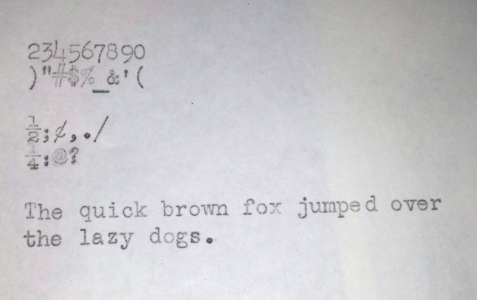 234567890
)"#$%_&'(
½;¢,./
¼:@?
The quick brown fox jumped over
the lazy dogs.